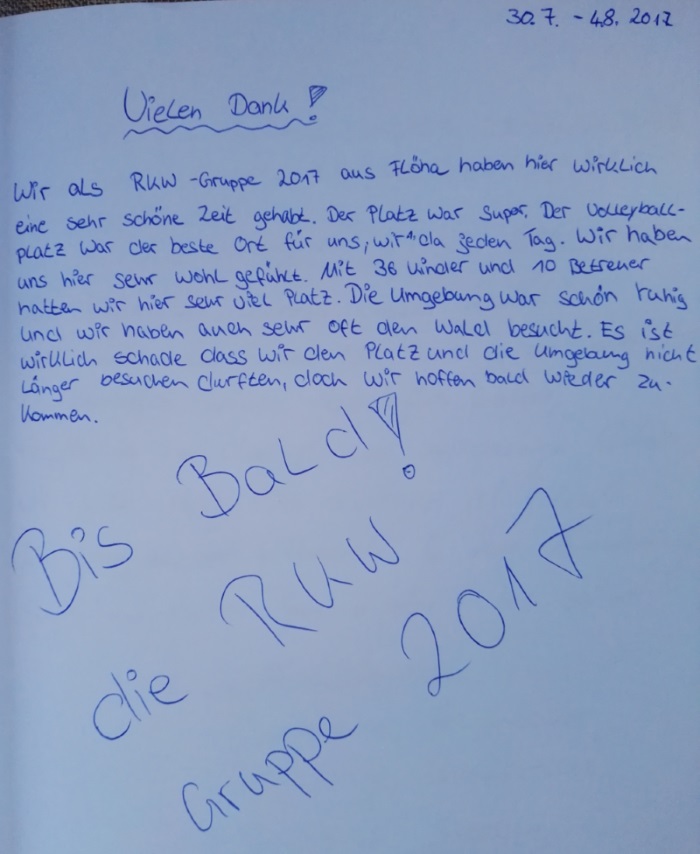 30.7. - 4.8. 2017
Vielen Dank!
Wir als RKW-Gruppe 2017 aus Flöha haben hier wirklich
eine sehr schöne Zeit gehabt. Der Platz war super. Der Volleyball-
platz war der beste Ort für uns, wir da jeden Tag. Wir haben
uns hier sehr wohl gefühlt. Mit 36 Kinder und 10 Betreuer
hatten wir hier sehr viel Platz. Die Umgebung war schön ruhig
und wir haben auch sehr oft den Wald besucht. Es ist
wirklich schade dass wir den Platz und die Umgebung nicht
länger besuchen durften, doch wir hoffen bald wieder zu-
kommen.
Bis Bald!
die RKW
Gruppe 2017